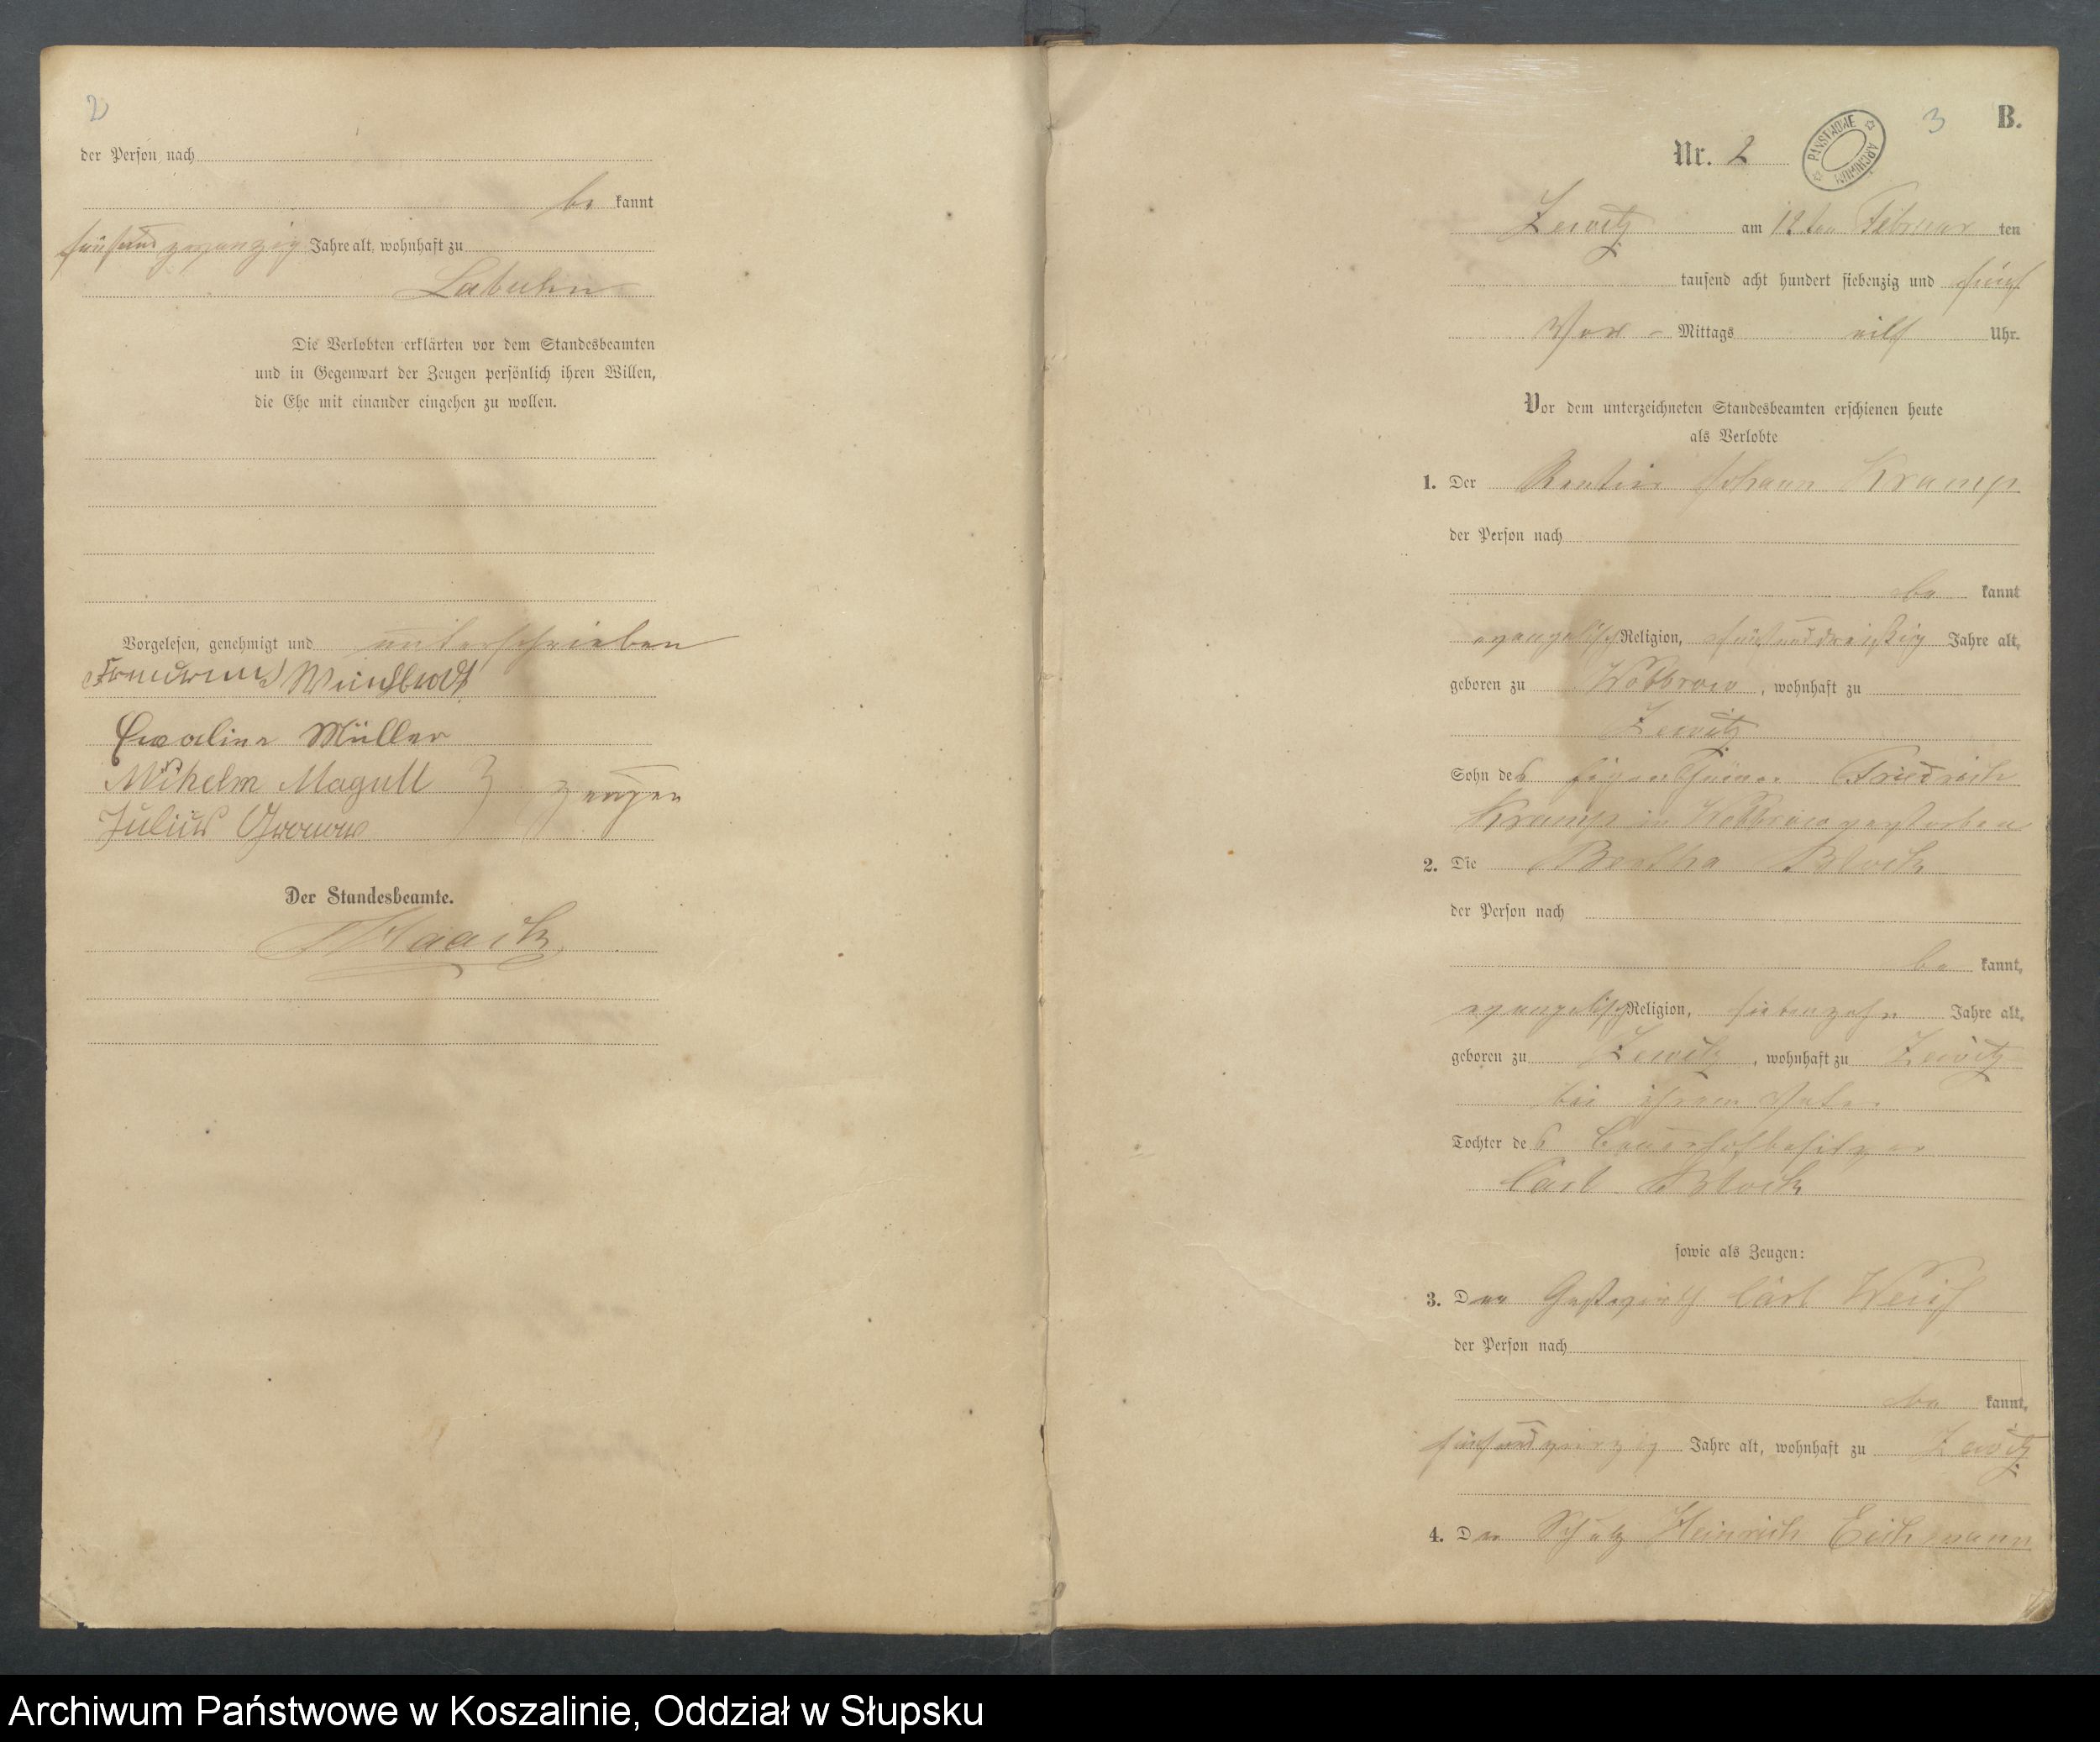 2
der Person nach
be kannt
fünfundzwanzig Jahre alt, wohnhaft zu
Labuhn
Die Verlobten erklärten vor dem Standesbeamten
und in Gegenwart der Zeugen persönlich ihren Willen,
die Ehe mit einander eingehen zu wollen.
Vorgelesen, genehmigt und unterschrieben
Caroline Müller
Wilhelm Magull
Zeugen
Julius
Der Standesbeamte.
Haack
3
B.
Nr. 2
PAŃSTWOWE ARCHIWUM
Zewitz am 12ten Februar ten
tausend acht hundert siebenzig und fünf
Vor-Mittags eilf Uhr.
Vor dem unterzeichneten Standesbeamten erschienen heute
als Verlobte
1. Der Rentier Johann Kramp
der Person nach
be kannt
evangelischer Religion, fünfunddreißig Jahre alt,
geboren zu Wobbrow, wohnhaft zu
Zewitz
Sohn des Eigenthümer Friedrich
Kramp in Wobbrow verstorben
2. Die Bertha Block
der Person nach
be kannt,
evangelischer Religion, siebenzehn Jahre alt,
geboren zu Zewitz, wohnhaft zu Zewitz
bei ihrem Vater
Tochter des Bauerhofbesitzer
Carl Block
sowie als Zeugen:
3. Der Gastwirth Carl
der Person nach
be kannt,
fünfundvierzig Jahre alt, wohnhaft zu Zewitz
4. Der Schulz Heinrich Eichmann
Archiwum Państwowe w Koszalinie, Oddział w Słupsku